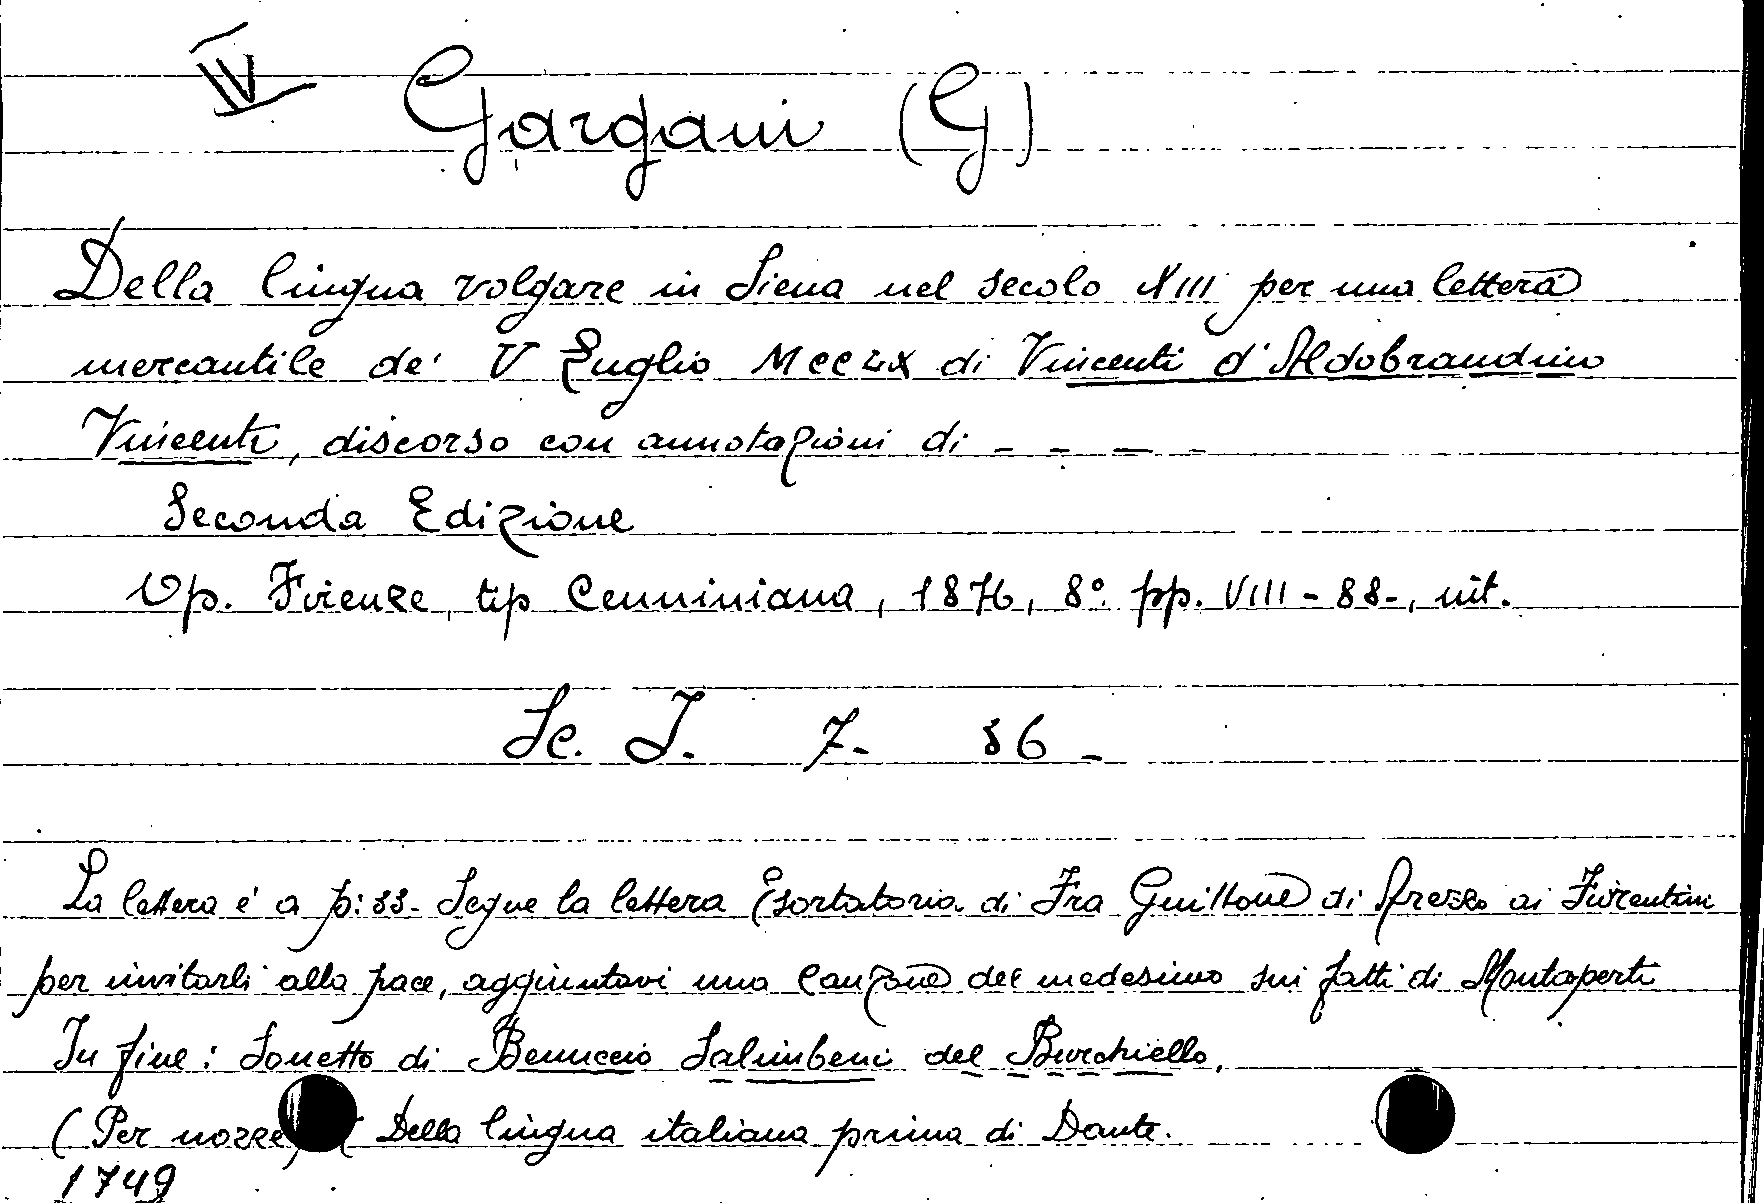 IV Gargani (G)
Della lingua volgare in Siena nel secolo XIII per una lettera
mercantile de' V Luglio MCCLX di Vincenti d'Aldobrandino
Vincenti, discorso con annotazioni di - - - -
Seconda Edizione
Op. Firenze, tip Cenniniana, 1876, 8° pp. VIII - 88-, int.
Sc. I. 7- 86 -
La lettera è a p: 33- Segue la lettera Esortatoria di Fra Guittone di Arezzo ai Fiorentini
per invitarli alla pace, aggiuntavi una Canzone del medesimo sui fatti di Montaperti
In fine: Sonetto di Benuccio Salimbeni del Burchiello.
(Per nozze) ( Della lingua italiana prima di Dante.
1749